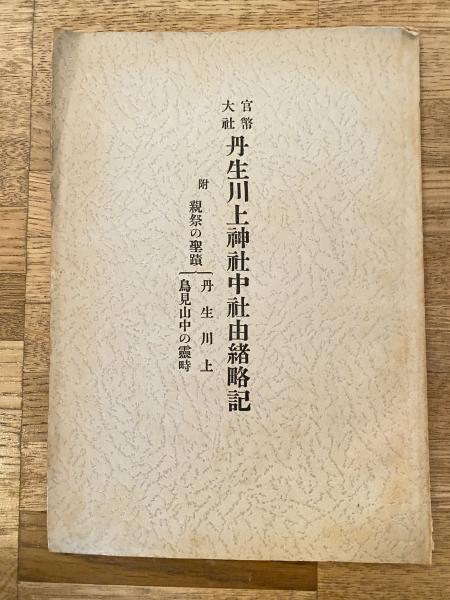 官幣
大社
丹生川上神社中社由緒略記
附
親祭の聖蹟
丹生川上
鳥見山中の靈畤